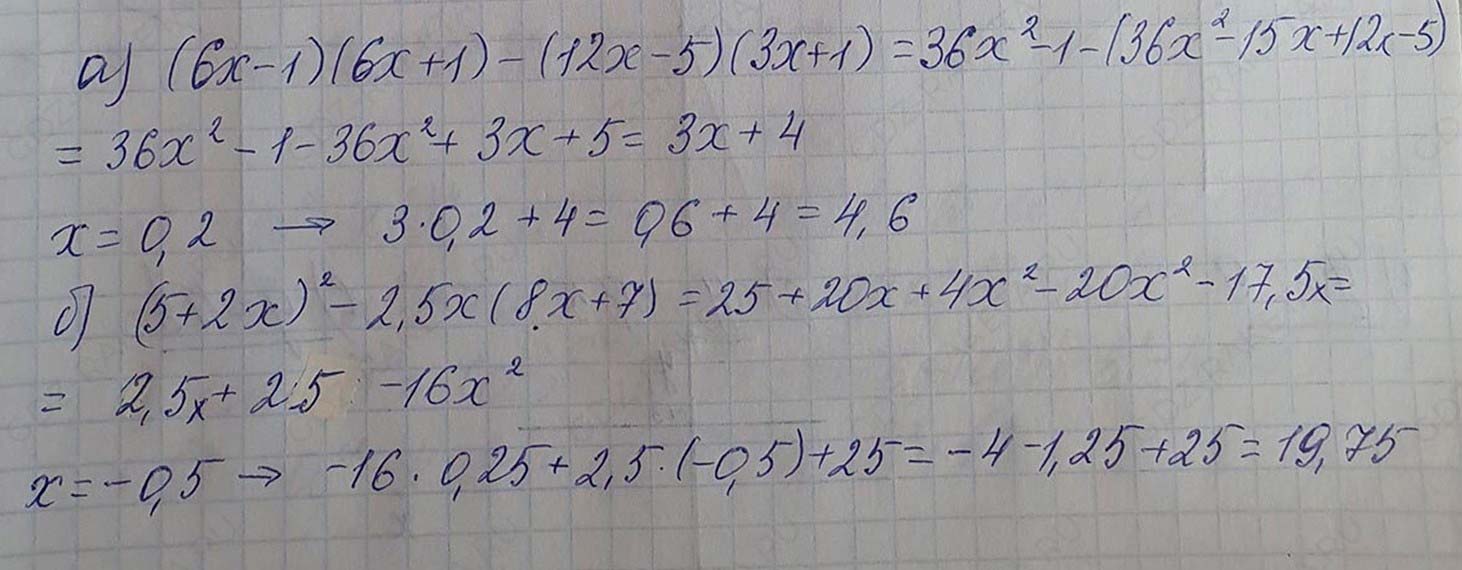 а) (6x-1)(6x+1)-(12x-5)(3x+1)=36x²-1-(36x²-15x+12x-5)
= 36x²-1-36x²+3x+5= 3x+4
x=0,2 → 3·0,2+4=0,6+4=4,6
б) (5+2x)²-2,5x(8x+7)=25+20x+4x²-20x²-17,5x=
= 2,5x+25 -16x²
x=-0,5 → -16·0,25+2,5·(-0,5)+25=-4-1,25+25=19,75